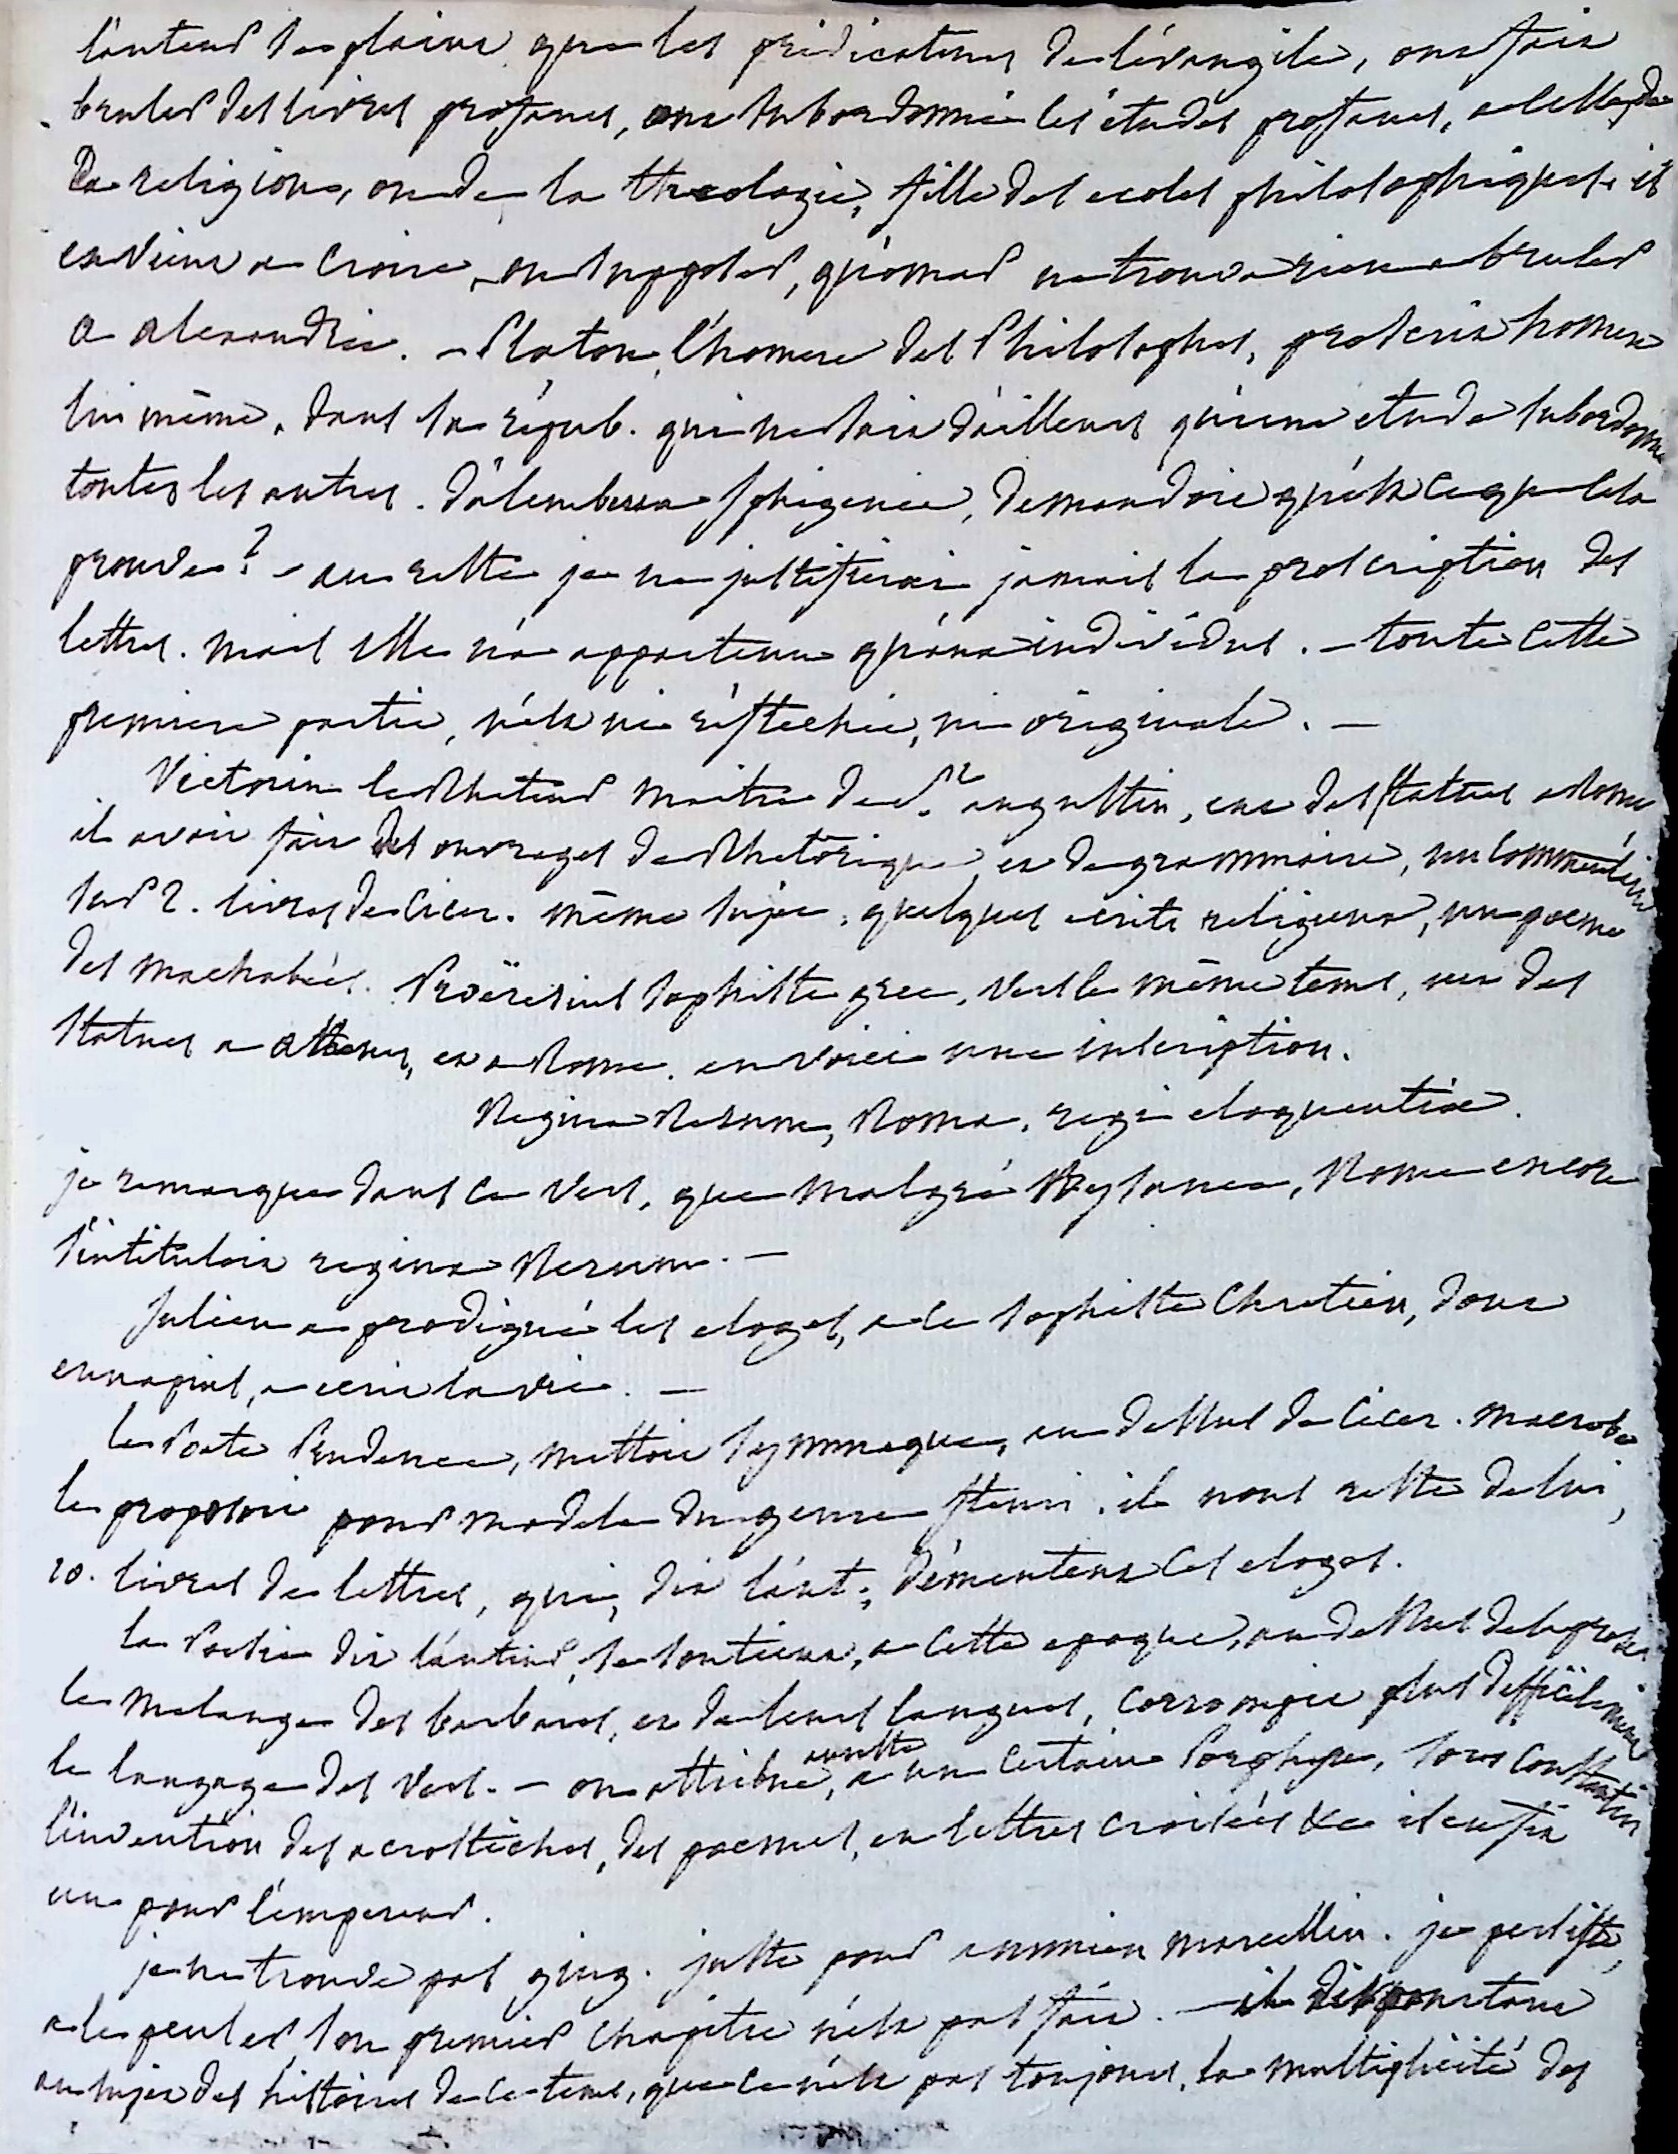 l'auteur se plaint que les prédicateurs de l'évangile, ont fait
bruler des livres profanes, ont subordonné les études profanes, a celles de
la religion, ou de la theologie, fille des ecoles philosophiques. il
en vient a croire, ou supposer, qu'omar ne trouva rien a bruler
a alexandrie. – Platon, l'homere des Philosophes, proscrit homere
lui même, dans sa répub. qui ne soit d'ailleurs qu'une etude subordonne
toutes les autres. d'alembert a Iphigenie, demandoit qu'est ce que cela
prouve? – au reste je ne justifierai jamais la proscription des
lettres. mais elle n'a appartenu qu'aux individus. – toute cette
premiere partie, n'est ni réflechie, ni originale. –
Victorin le Rheteur maitre de St. augustin, eut des statues a Rome
il avoit fait des ouvrages de Rhetorique et de grammaire, un commentaire
sur 2. livres de Cicer. même sujet. quelques ecrits religieux, un poeme
des machabées. Proëresius sophiste grec, vers le même tems, eut des
statues a athenes, et a Rome. en voici une inscription.
Regina Rerum, Roma, regi eloquentiæ.
je remarque dans ce vers, que malgré Bysance, Rome encore
s'intituloit regina Rerum. –
Julien a prodigué les eloges, a ce sophiste Chretien, dont
eunapius, a ecrit la vie. –
le Poete Prudence, mettoit Symmaque, au dessus de Cicer. macrobe
le proposoit pour modele du genre fleuri. il nous reste de lui,
10. livres de lettres, qui, dit l'aut., démentent ces eloges.
la Poesie dit l'auteur, se soutient, a cette epoque, au dessus de la prose
le melange des barbares, et de leurs langues, corrompit plus difficilement
le langage des vers. – on attribue, au reste a un certain Porphyre, sous Constantin
l'invention des acrostiches, des poemes, en lettres croisées &c il en fit
un pour l'empereur.
je ne trouve pas ging. juste pour ammien marcellin. je persiste,
a le penser, son premier chapitre n'est pas fait. – il dit pourtant
au sujet des histoires de ce tems, que ce n'est pas toujours, la multiplicité des